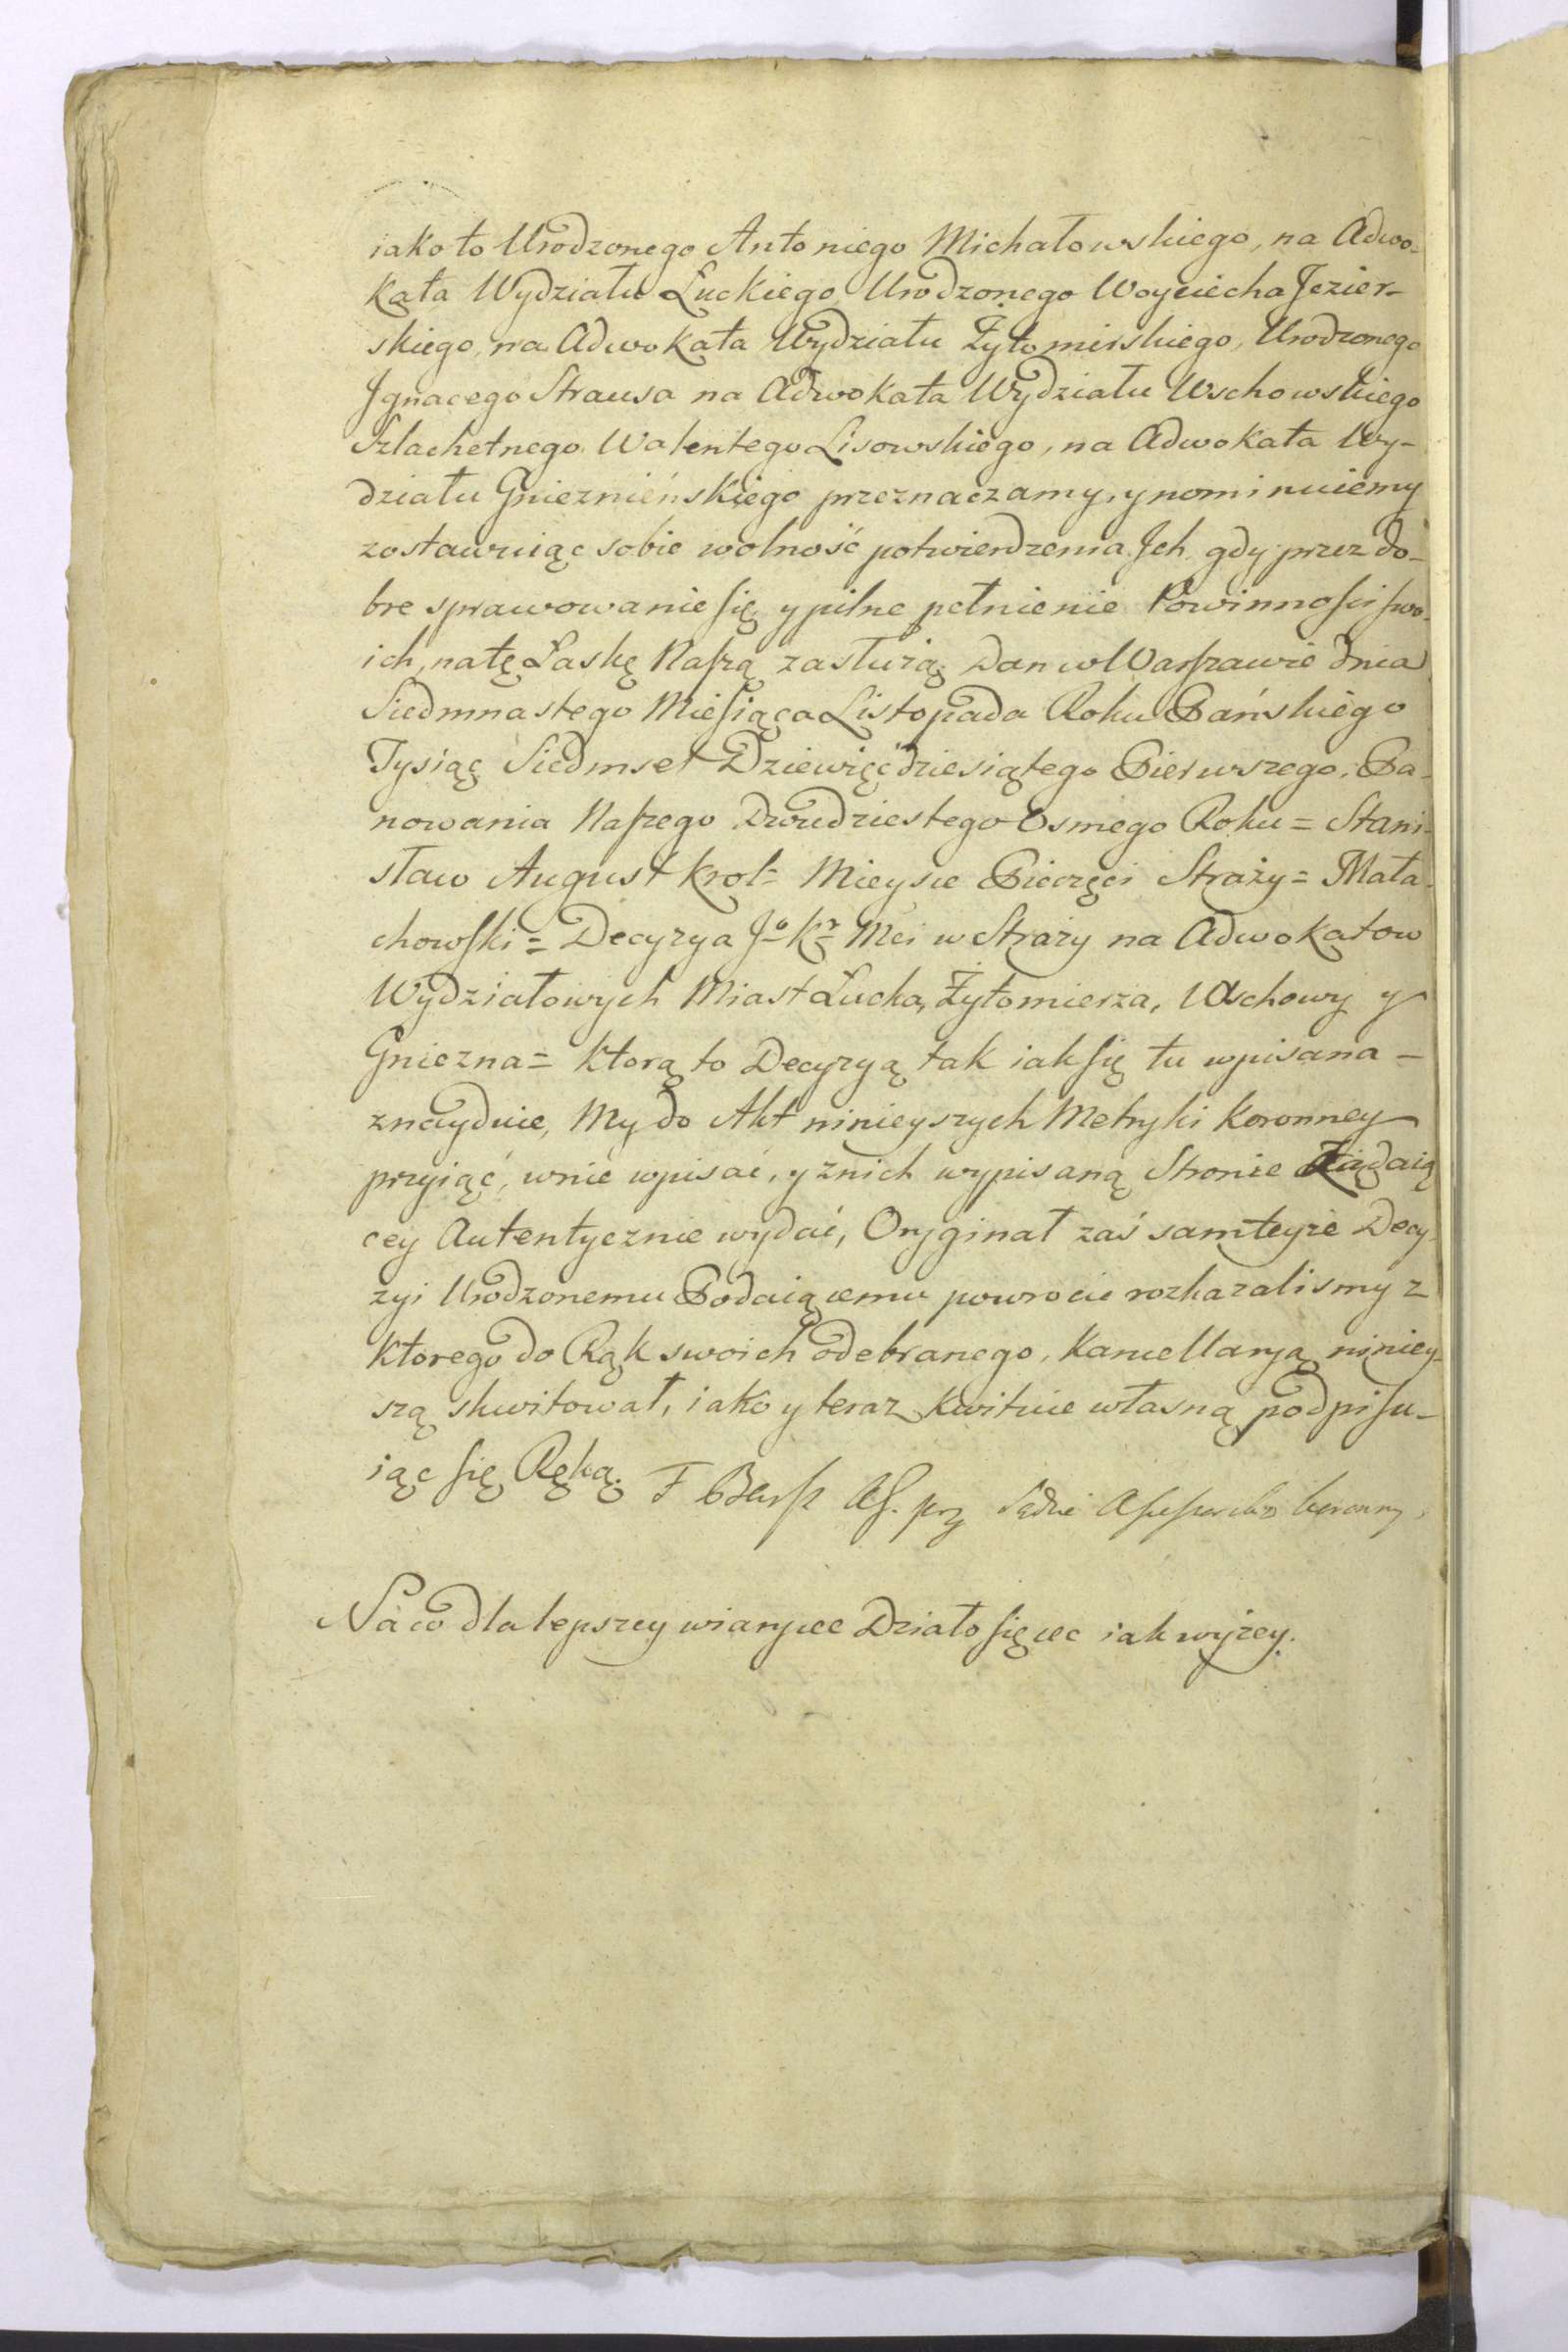 iako to Urodzonego Antoniego Michałowskiego, na Adwo-
kata Wydziału Łuckiego, Urodzonego Woyciecha Jezier-
skiego, na Adwokata Wydziału Żytomirskiego, Urodzonego
Jgnacego Strausa na Adwokata Wydziału Wschowskiego
Szlachetnego Walentego Lisowskiego, na Adwokata Wy-
działu Gnieznieńskiego przeznaczamy, y nominuiemy
zostawuiąc sobie wolność potwierdzenia Jch, gdy przez do-
bre sprawowanie się, y pilne pełnienie Powinności swo-
ich, na tę Łaskę Naszą zasłużą. Dan w Warszawie dnia
Siedmnastego Miesiąca Listopada Roku Pańskiego
Tysiąc Siedmset Dziewięćdziesiątego Pierwszego, Pa-
nowania Naszego Dwudziestego Osmego Roku = Stani-
sław August Krol = Mieysce Pieczęci Straży = Mała-
chowski = Decyzya Jo Kr Mci w Straży na Adwokatow
Wydziałowych Miast Łucka, Żytomierza, Wschowy y
Gniezna = Ktorą to Decyzyą tak iak się tu wpisana -
znayduie, My do Akt ninieyszych Metryki Koronney
przyiąć, w nie wpisać, y z nich wypisaną Stronie Żądaią
cey Autentycznie wydać, Oryginał zaś sam teyże Decy-
zyi Urodzonemu Podaiącemu powrocic rozkazalismy z
ktorego do Rąk swoich odebranego, Kancellaryą niniey-
szą skwitował, iako y teraz kwituie własną podpisu-
iąc się Ręką. F Barss przy Sądzie
Na co dla lepszey wiary etc Działo się etc iak wyżey.